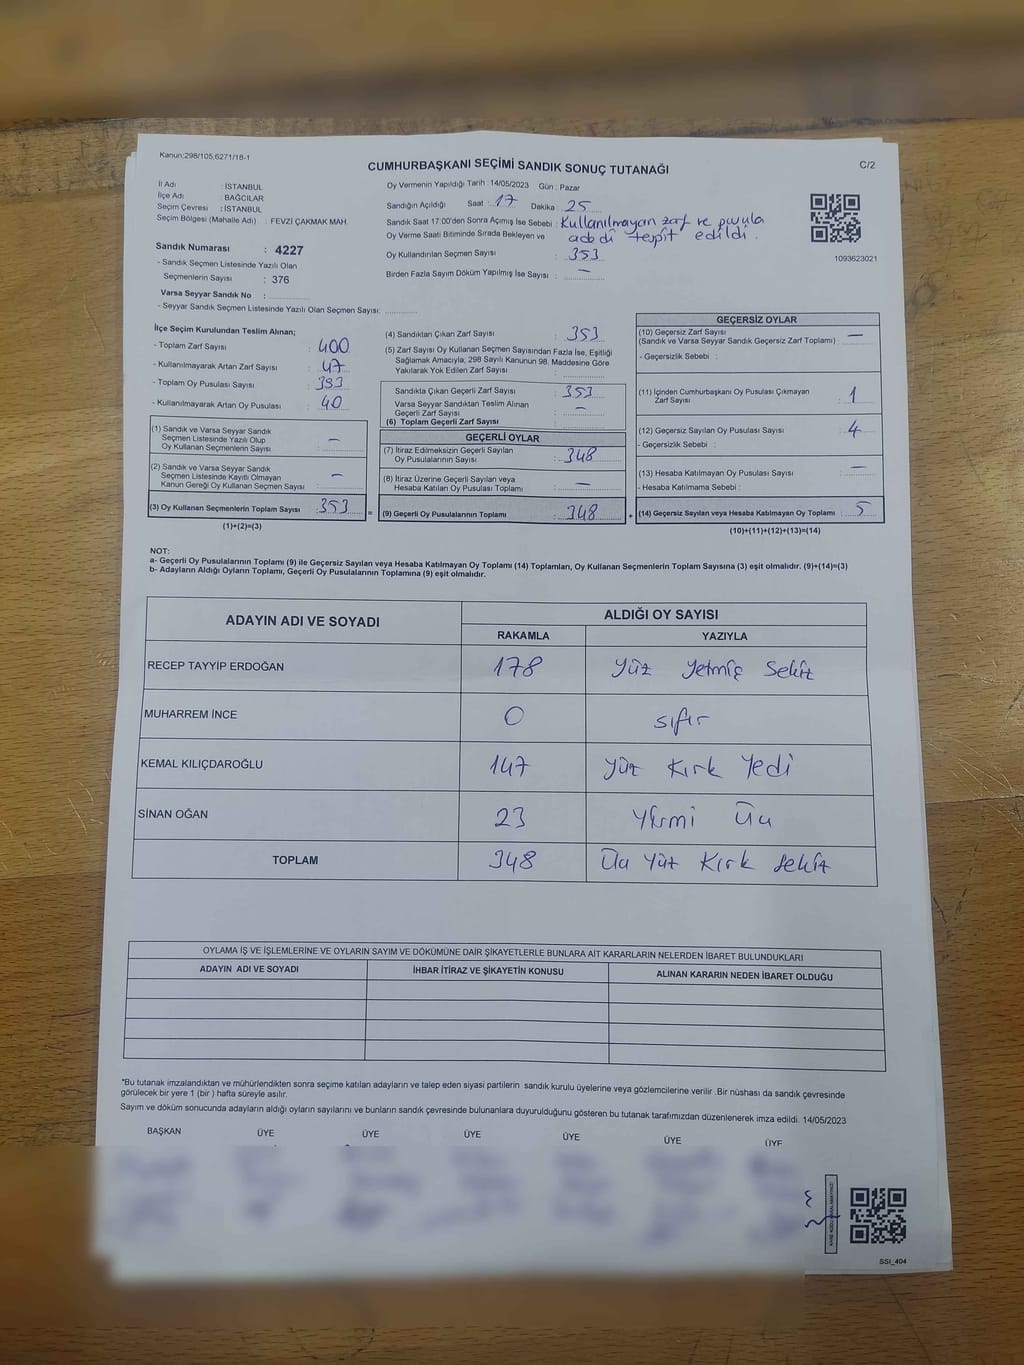 Kanun:298/105,6271/18-1
CUMHURBAŞKANI SEÇİMİ SANDIK SONUÇ TUTANAĞI
C/2
İl Adı : İSTANBUL
İlçe Adı : BAĞCILAR
Seçim Çevresi : İSTANBUL
Seçim Bölgesi (Mahalle Adı) : FEVZİ ÇAKMAK MAH.
Sandık Numarası : 4227
- Sandık Seçmen Listesinde Yazılı Olan
Seçmenlerin Sayısı : 376
Varsa Seyyar Sandık No :
- Seyyar Sandık Seçmen Listesinde Yazılı Olan Seçmen Sayısı:
Oy Vermenin Yapıldığı Tarih : 14/05/2023 Gün : Pazar
Sandığın Açıldığı Saat : 17 Dakika : 25
Sandık Saat 17:00'den Sonra Açılmış İse Sebebi : Kullanılmayan zarf ve pusula
Oy Verme Saati Bitiminde Sırada Bekleyen ve adedi tespit edildi.
Oy Kullandırılan Seçmen Sayısı : 353
Birden Fazla Sayım Döküm Yapılmış İse Sayısı : —
1093623021
İlçe Seçim Kurulundan Teslim Alınan;
- Toplam Zarf Sayısı : 400
- Kullanılmayarak Artan Zarf Sayısı : 47
- Toplam Oy Pusulası Sayısı : 393
- Kullanılmayarak Artan Oy Pusulası : 40
(1) Sandık ve Varsa Seyyar Sandık
Seçmen Listesinde Yazılı Olup
Oy Kullanan Seçmenlerin Sayısı : —
(2) Sandık ve Varsa Seyyar Sandık
Seçmen Listesinde Kayıtlı Olmayan
Kanun Gereği Oy Kullanan Seçmen Sayısı : —
(3) Oy Kullanan Seçmenlerin Toplam Sayısı : 353
(1)+(2)=(3)
(4) Sandıktan Çıkan Zarf Sayısı : 353
(5) Zarf Sayısı Oy Kullanan Seçmen Sayısından Fazla İse, Eşitliği
Sağlamak Amacıyla; 298 Sayılı Kanunun 98. Maddesine Göre
Yakılarak Yok Edilen Zarf Sayısı :
Sandıkta Çıkan Geçerli Zarf Sayısı : 353
Varsa Seyyar Sandıktan Teslim Alınan
Geçerli Zarf Sayısı : —
(6) Toplam Geçerli Zarf Sayısı
GEÇERLİ OYLAR
(7) İtiraz Edilmeksizin Geçerli Sayılan
Oy Pusulalarının Sayısı : 348
(8) İtiraz Üzerine Geçerli Sayılan veya
Hesaba Katılan Oy Pusulası Toplamı : —
= (9) Geçerli Oy Pusulalarının Toplamı : 348 +
GEÇERSİZ OYLAR
(10) Geçersiz Zarf Sayısı
(Sandık ve Varsa Seyyar Sandık Geçersiz Zarf Toplamı) : —
- Geçersizlik Sebebi :
(11) İçinden Cumhurbaşkanı Oy Pusulası Çıkmayan
Zarf Sayısı : 1
(12) Geçersiz Sayılan Oy Pusulası Sayısı : 4
- Geçersizlik Sebebi :
(13) Hesaba Katılmayan Oy Pusulası Sayısı : —
- Hesaba Katılmama Sebebi :
(14) Geçersiz Sayılan veya Hesaba Katılmayan Oy Toplamı : 5
(10)+(11)+(12)+(13)=(14)
NOT:
a- Geçerli Oy Pusulalarının Toplamı (9) ile Geçersiz Sayılan veya Hesaba Katılmayan Oy Toplamı (14) Toplamları, Oy Kullanan Seçmenlerin Toplam Sayısına (3) eşit olmalıdır. (9)+(14)=(3)
b- Adayların Aldığı Oyların Toplamı, Geçerli Oy Pusulalarının Toplamına (9) eşit olmalıdır.
ADAYIN ADI VE SOYADI
ALDIĞI OY SAYISI
RAKAMLA YAZIYLA
RECEP TAYYİP ERDOĞAN 178 Yüz Yetmiş Sekiz
MUHARREM İNCE 0 sıfır
KEMAL KILIÇDAROĞLU 147 Yüz Kırk Yedi
SİNAN OĞAN 23 Yirmi Üç
TOPLAM 348 Üç Yüz Kırk Sekiz
OYLAMA İŞ VE İŞLEMLERİNE VE OYLARIN SAYIM VE DÖKÜMÜNE DAİR ŞİKAYETLERLE BUNLARA AİT KARARLARIN NELERDEN İBARET BULUNDUKLARI
ADAYIN ADI VE SOYADI İHBAR İTİRAZ VE ŞİKAYETİN KONUSU ALINAN KARARIN NEDEN İBARET OLDUĞU
*Bu tutanak imzalandıktan ve mühürlendikten sonra seçime katılan adayların ve talep eden siyasi partilerin sandık kurulu üyelerine veya gözlemcilerine verilir .Bir nüshası da sandık çevresinde
görülecek bir yere 1 (bir ) hafta süreyle asılır.
Sayım ve döküm sonucunda adayların aldığı oyların sayılarını ve bunların sandık çevresinde bulunanlara duyurulduğunu gösteren bu tutanak tarafımızdan düzenlenerek imza edildi. 14/05/2023
BAŞKAN ÜYE ÜYE ÜYE ÜYE ÜYE ÜYE
SSI_404